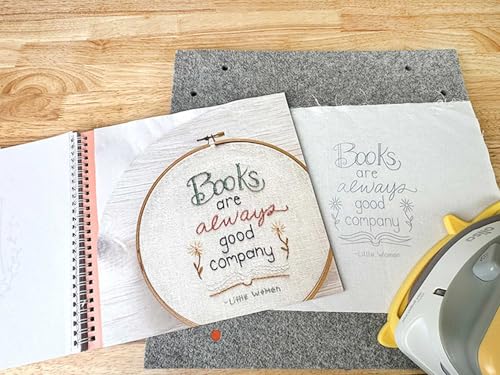 Books
are
always
good
company
-Little Women
Books
are
always
good
company
-Little Women
oliso